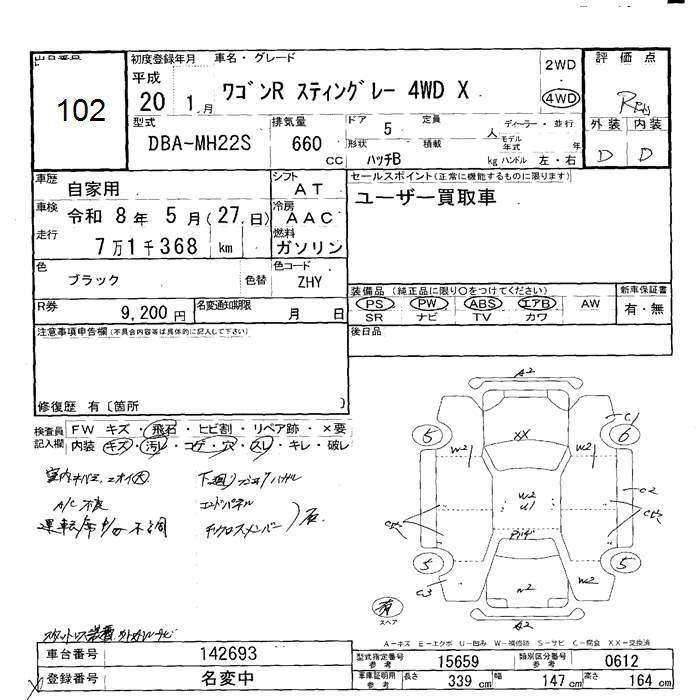 出品番号
102
初度登録年月
平成
20 1月
車名・グレード
ワゴンR スティングレー 4WD X
2WD
4WD
評価点
型式
DBA-MH22S
排気量
660
cc
ドア
5
定員
人
形状
ハッチB
積載
kg
ディーラー・並行
モデル年式
年
ハンドル 左・右
外装 内装
D D
車歴
自家用
シフト
AT
セールスポイント(正常に機能するものに限ります)
ユーザー買取車
車検
令和 8年 5月(27日)
冷房
AAC
走行
7万1千368 km
燃料
ガソリン
色
ブラック
色替
色コード
ZHY
装備品(純正品に限り○をつけてください)
PS PW ABS エアB AW
SR ナビ TV カワ
新車保証書
有・無
R券
9,200円
名変通知期限
月 日
後日品
注意事項申告欄(不具合内容等は具体的に記入して下さい)
修復歴 有〔箇所 〕
検査員記入欄
FW キズ・飛石・ヒビ割・リペア跡・×要
内装 キズ・汚レ・コゲ・穴・スレ・キレ・破レ
A/C不良
エンドパネル
A2
C1
5
6
XX
W2
W2
C2
W2
U1
5
5
C3
W2
W2
A2
有
スペア
A-キズ E-エクボ U-凹み W-補修跡 S-サビ C-腐食 XX-交換済
車台番号
142693
登録番号
名変中
型式指定番号
参考
15659
類別区分番号
参考
0612
車庫証明用
参考
長さ
339 cm
幅
147 cm
高さ
164 cm